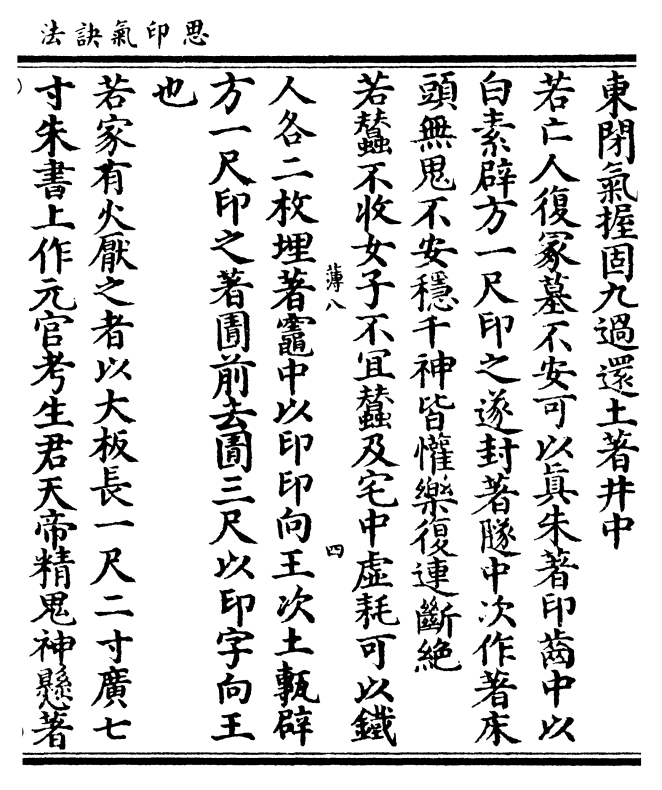 思印氣訣法
東閉氣握固九過還土著井中
若亡人復冢墓不安可以真朱著印齒中以
白素辟方一尺印之遂封著隧中次作著床
頭無鬼不安穩千神皆懽樂復連斷絶
若蠶不收女子不宜蠶及宅中虛耗可以鐵
薄八
四
人各二枚埋著竈中以印印向王次土墼辟
方一尺印之著圊前去圊三尺以印字向王
也
若家有火厭之者以大板長一尺二寸廣七
寸朱書上作元官考生君天帝精鬼神懸著